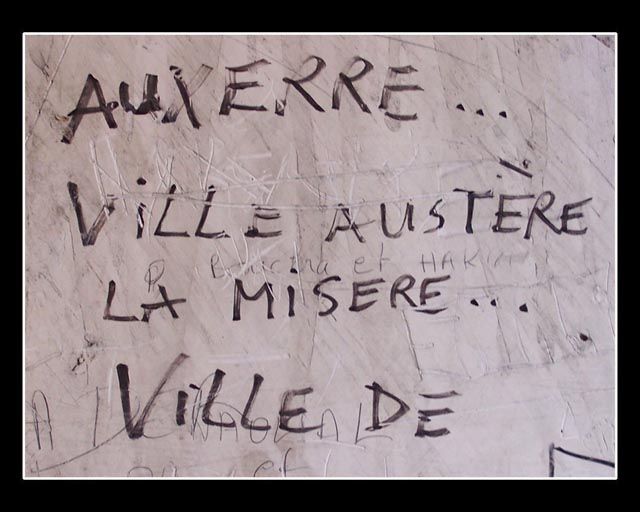 AUXERRE...
ViLLE AUSTÈRE
et HAKIM
LA MISERE...
ViLLE DE
et